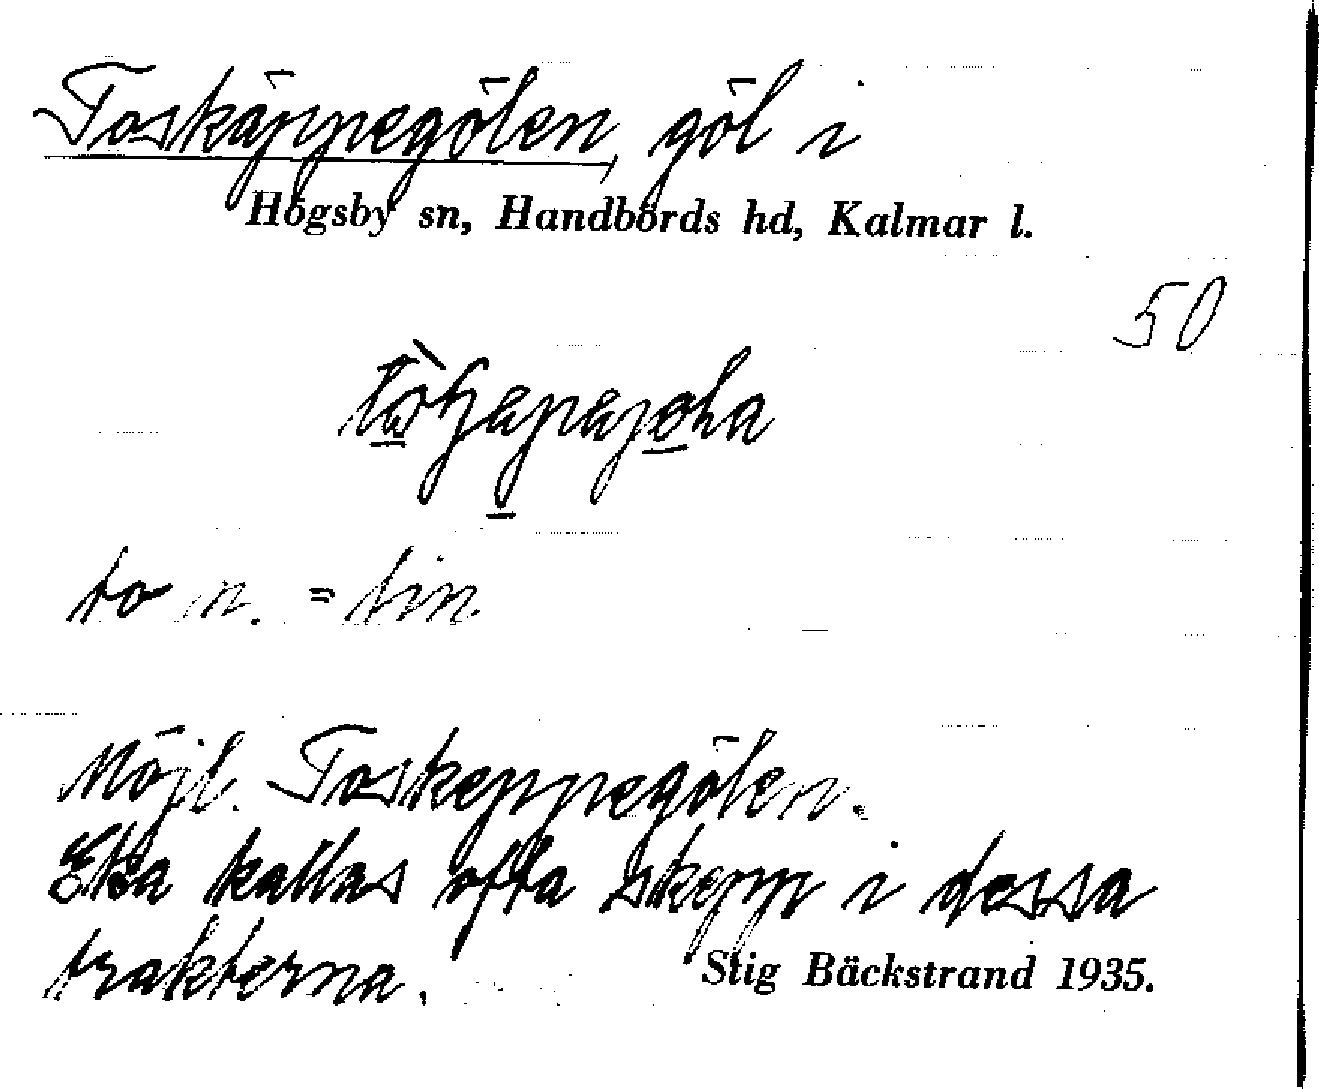 Toskäppegölen, göl i
Högsby sn, Handbörds hd, Kalmar l.
50
to n. = lin
Möjl. Toskeppegölen.
Eka kallas ofta skepp i dessa
trakterna.
Stig Bäckstrand 1935.